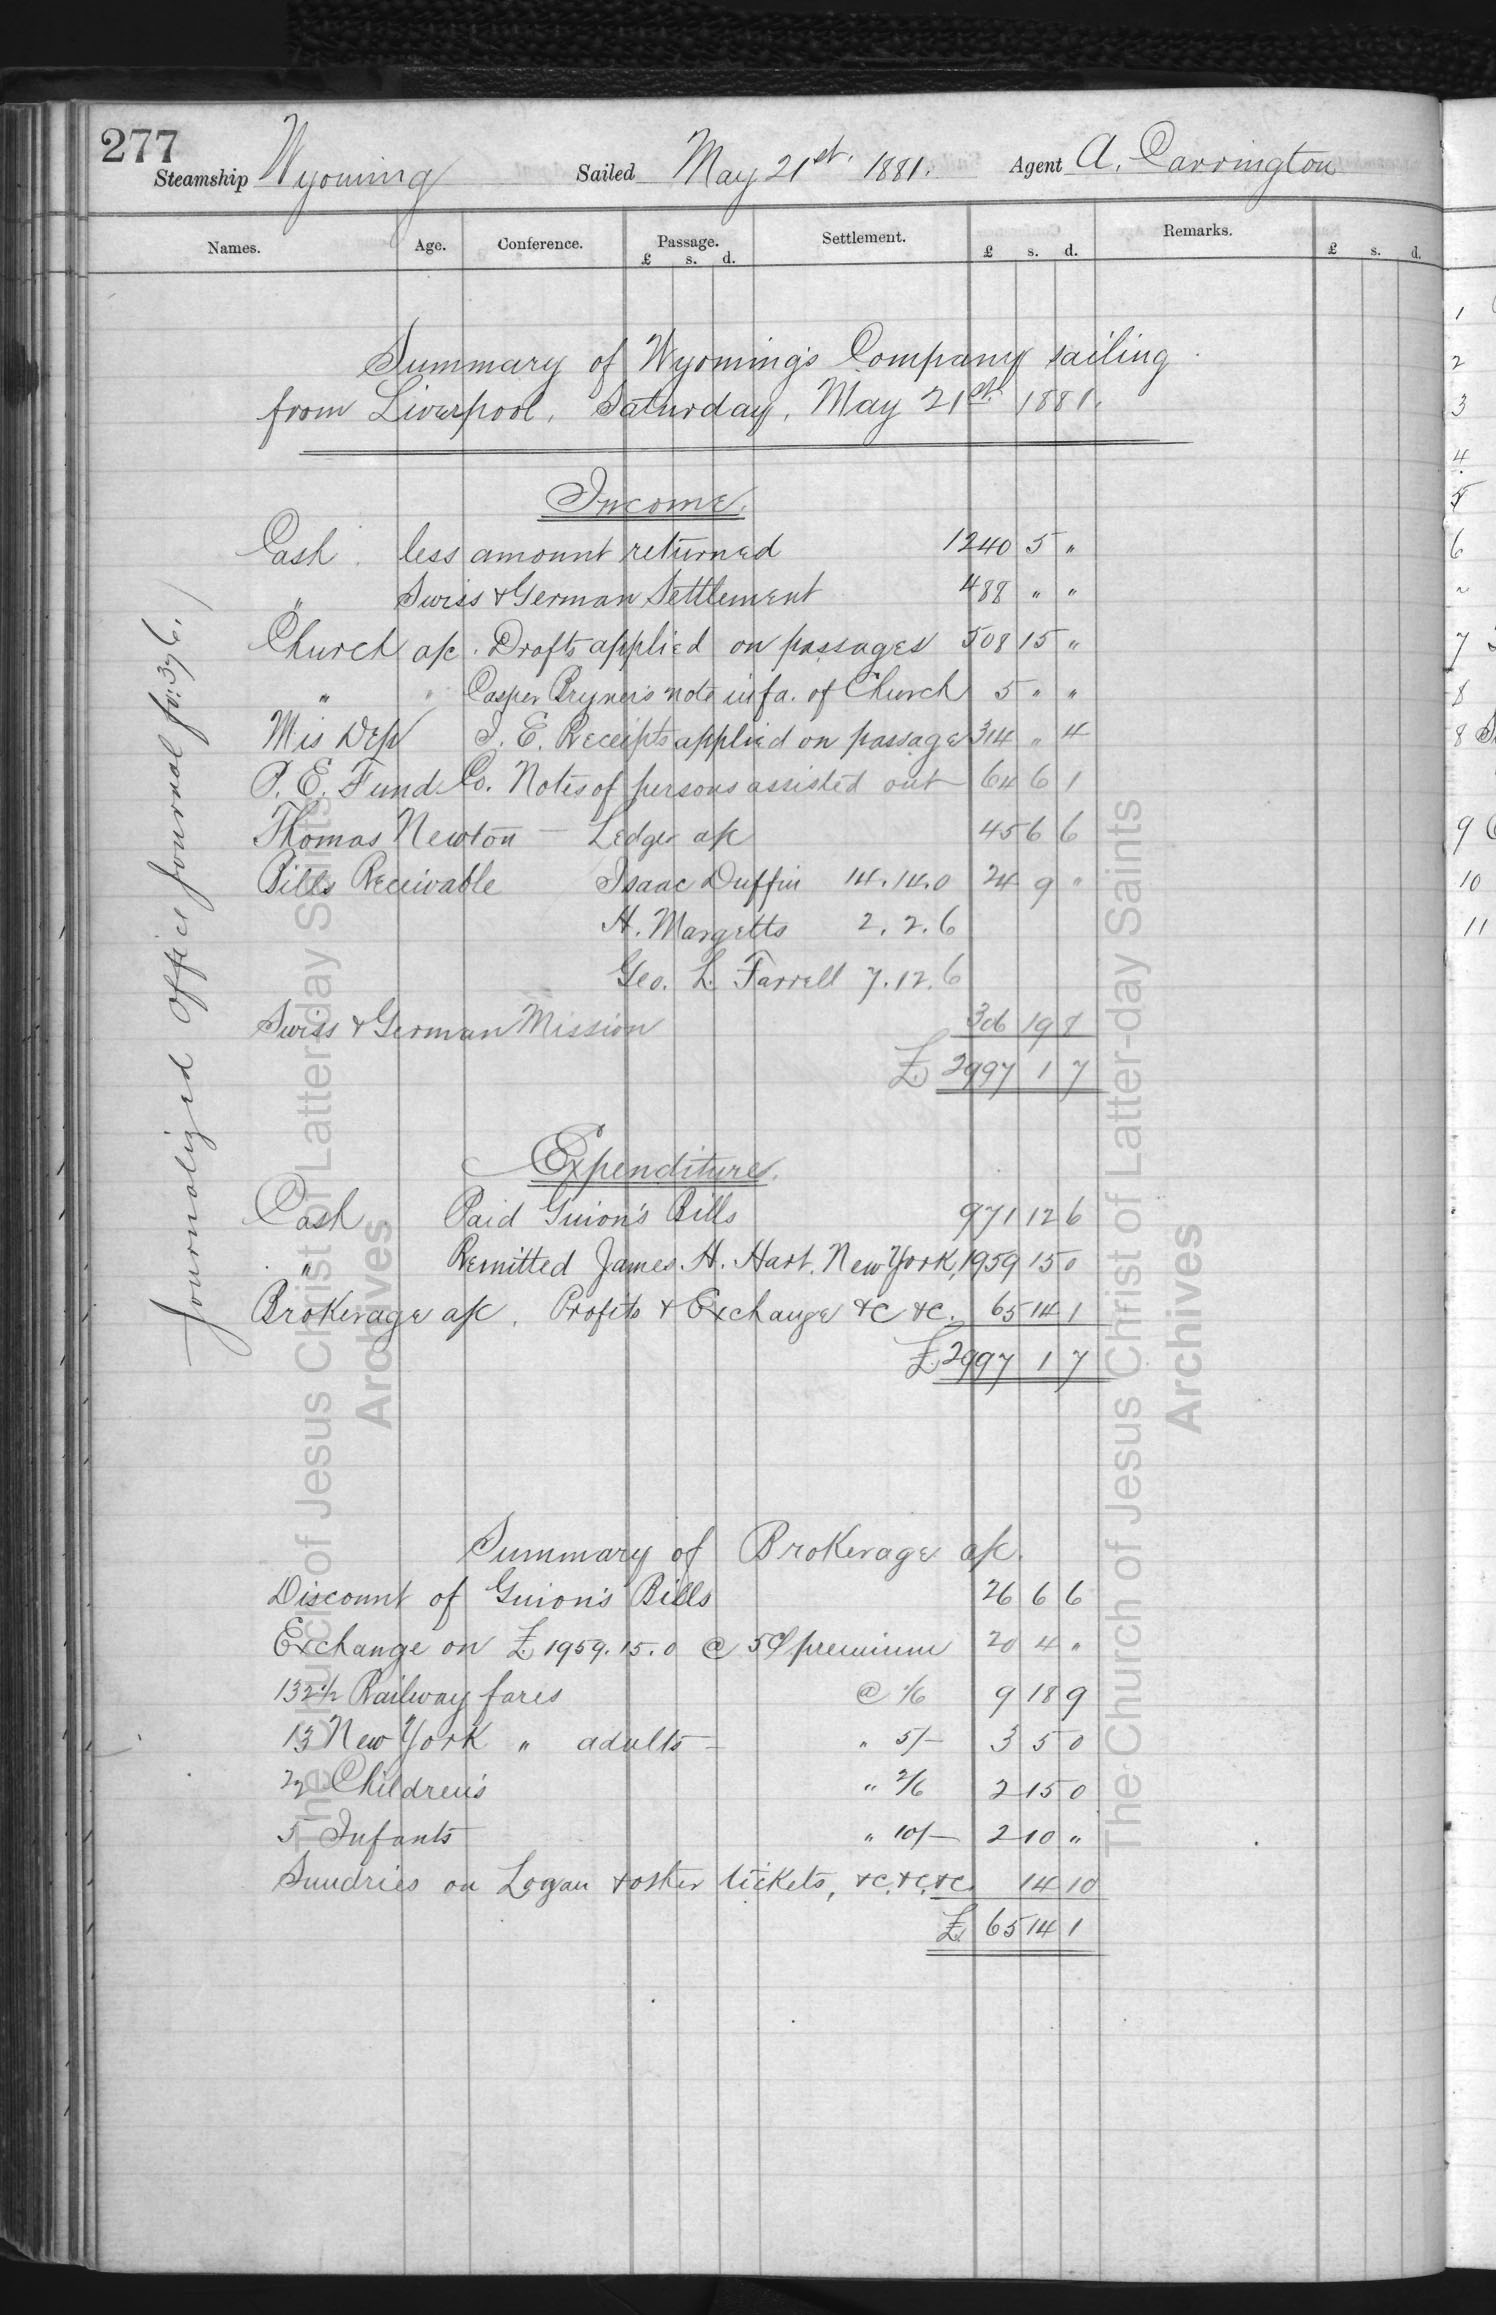 277
Steamship Wyoming Sailed May 21st. 1881. Agent A. Carrington
Names. Age. Conference. Passage. Settlement. Remarks.
£ s. d. £ s. d. £ s. d.
Summary of Wyoming's Company sailing
from Liverpool, Saturday, May 21st. 1881.
Income.
Cash. less amount returned 1240 5 "
" Swiss & German Settlement 488 " "
Church a/c. Drafts applied on passages 508 15 "
" " Casper Bryner's note in fa. of Church 5 " "
Mis Dep I. E. Receipts applied on passage 314 " 4
P. E. Fund Co. Notes of persons assisted out 64 6 1
Thomas Newton — Ledger a/c 45 6 6
Bills Receivable Isaac Duffin 14.14.0 24 9 "
H. Margetts 2.2.6
Geo. L. Farrell 7.12.6
Swiss & German Mission 306 19 8
£ 2997 1 7
Expenditures.
Cash Paid Guion's Bills 971 12 6
" Remitted James H. Hart, New York, 1959 15 0
Brokerage a/c, Profits & Exchange &c &c. 65 14 1
£ 2997 1 7
Summary of Brokerage a/c.
Discount of Guion's Bills 26 6 6
Exchange on £1959.15.0 @ 5¢ premium 20 4 "
132 1/2 Railway fares @ 1/6 9 18 9
13 New York " adults — " 5/- 3 5 0
22 Children's " 2/6 2 15 0
5 Infants " 10/- 2 10 "
Sundries on Logan & other tickets, &c, &c, &c 14 10
£ 65 14 1
Journalized Office Journal fo: 376.
The Church of Jesus Christ of Latter-day Saints
Archives
The Church of Jesus Christ of Latter-day Saints
Archives
1
2
3
4
5
6
"
7
8
8
9
10
11